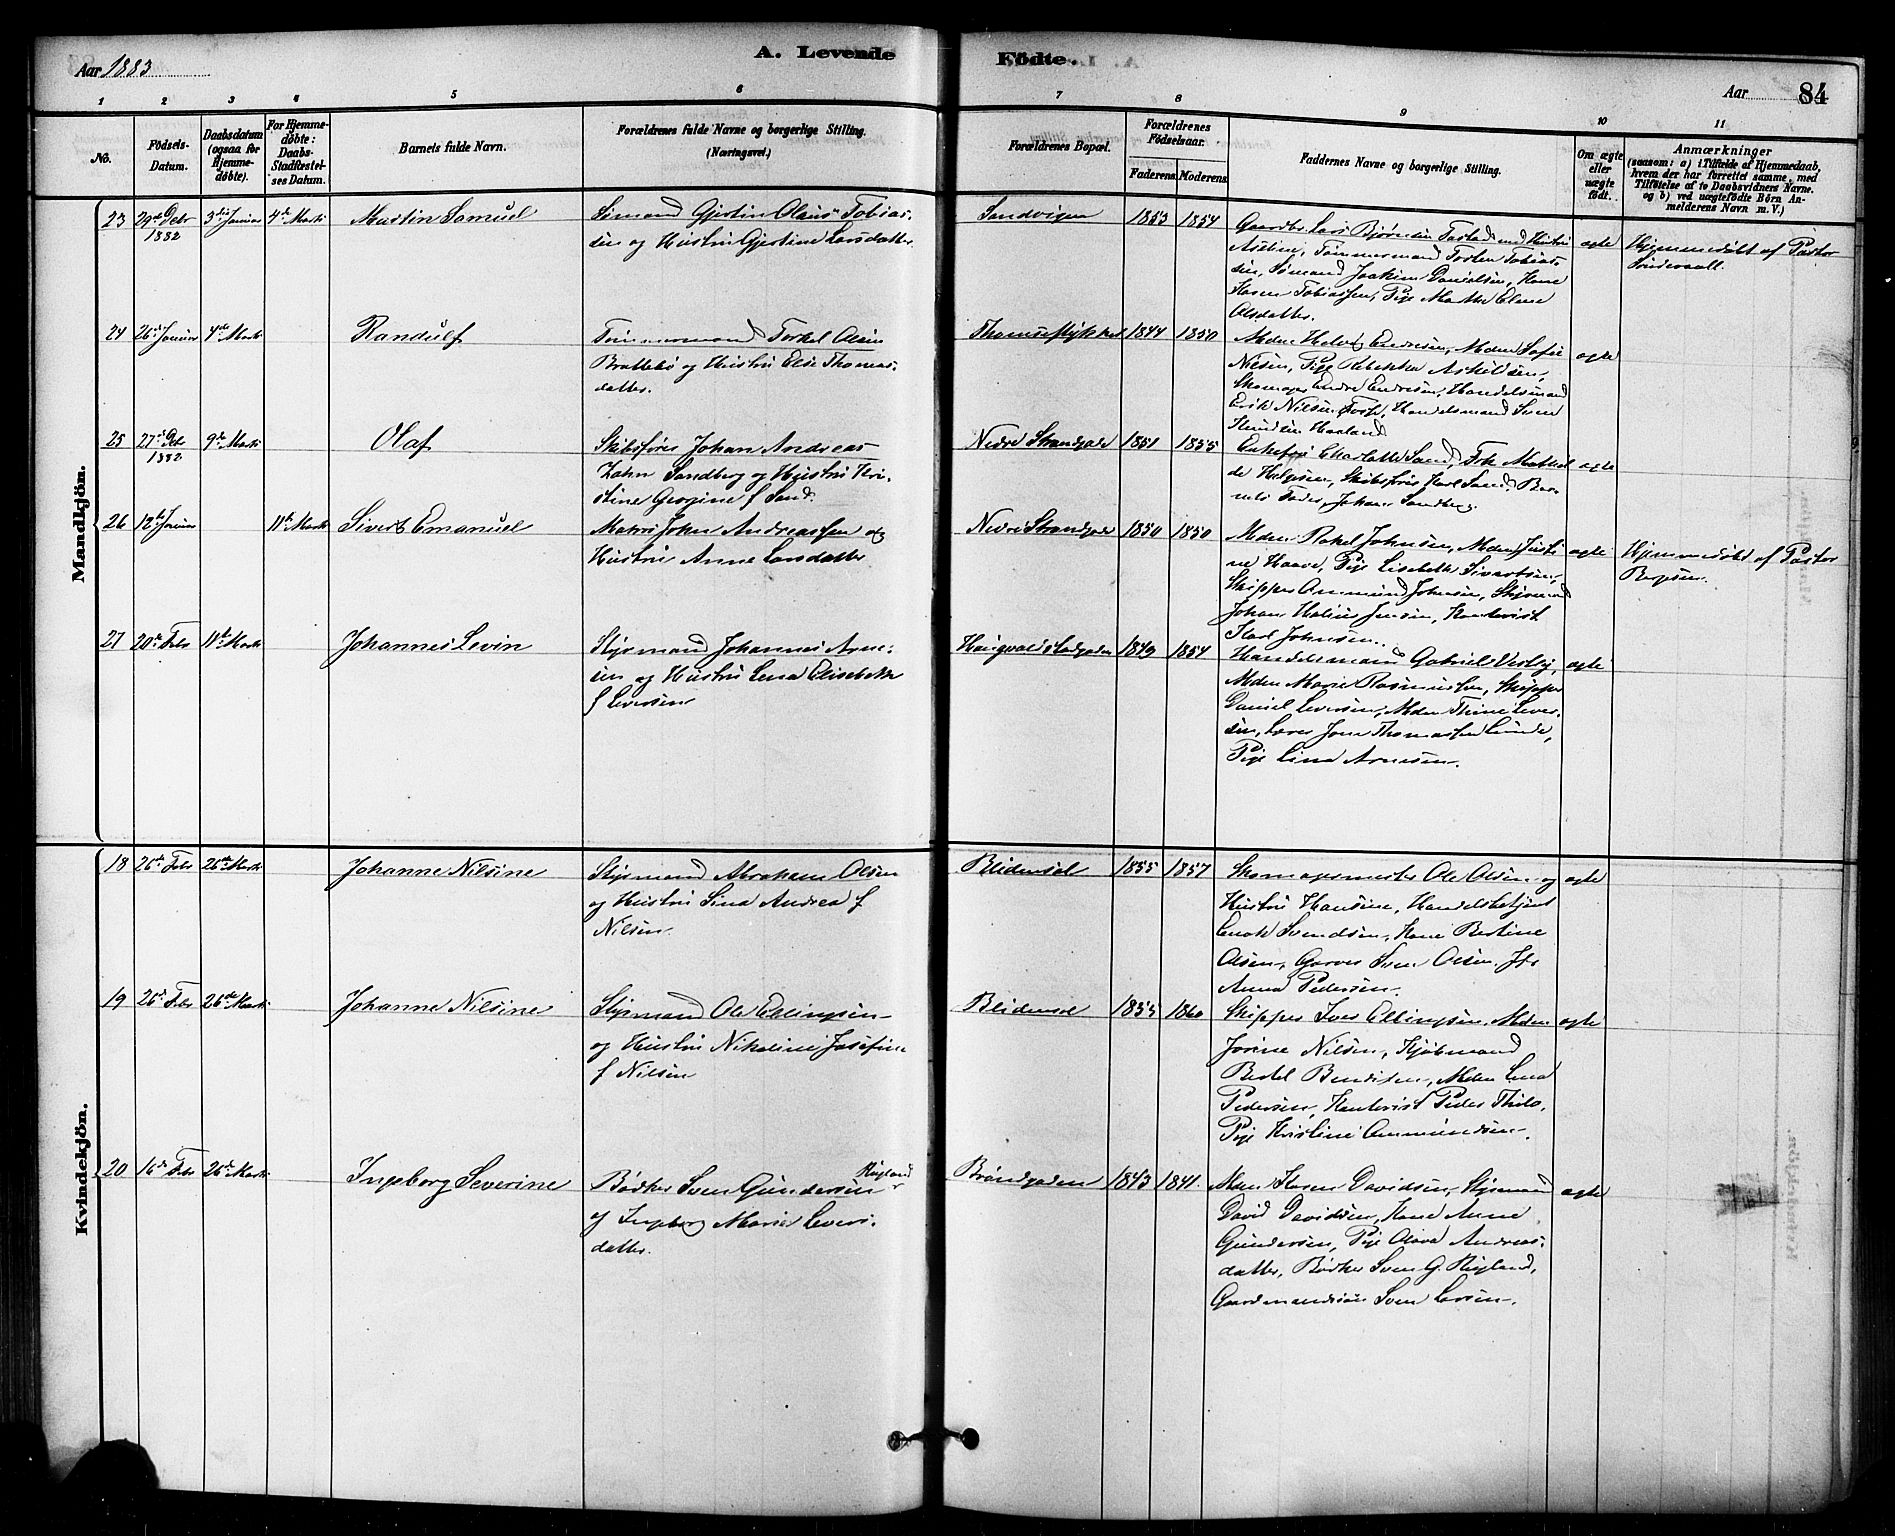 Aar 1883
A. Levende
Födte.
Aar 84
1 2 3 4 5 6 7 8 9 10 11
No.
Födsels-Datum.
Daabsdatum (ogsaa for Hjemmedöbte).
For Hjemmedöbte: Daabs-Stadfæstelses Datum.
Barnets fulde Navn.
Forældrenes fulde Navne og borgerlige Stilling. (Næringsvei.)
Forældrenes Bopæl.
Forældrenes Födselsaar.
Faderens. Moderens.
Faddernes Navne og borgerlige Stilling.
Om ægte eller uægte födt.
Anmærkninger
(saasom: a) i Tilfælde af Hjemmedaab, hvem der har forrettet samme, med Tilföielse af to Daabsvidners Navne. og b) ved uægtefödte Börn Anmelderens Navn m. V.)
Mandkjön.
23 29de Dcbr 1882 3die Januar 4de Marts Martin Samuel
Sömand Gjertin Olaus Tobias-
sen og Hustru Gjertine Larsdatter
Sandvigen 1853 1854
Gaardbr. Lars Bjørnsen Tastad med Hustru
Aseline, Tømmermand Torsten Tobias-
sen, Sømand Joakim Danielsen, Kone
Karen Tobiassen, Pige Marthe Eline
Olsdatter.
ægte
Hjemmedøbt af Pastor
24 26de Januar 4de Marts Randulf
Tømmermand Torkel Olsen
Brattebø og Hustru Else Thomas-
datter.
1844 1850
Mdm Helvig Endresen, Mdm Sofie
Nilsen, Pige Rebekka Askildsen,
Skomager Endre Endresen, Handelsmand
Erik Nilsen, Handelsmand Sven
Knudsen Haaland
ægte
25 27de Dcbr 1882 9de Marts Olaf
Skibsfører Johan Andreas
Zahn Sandberg og Hustru Kri-
stine Georgine f Sand.
Nedre Strandgade 1851 1855
Enkefru Charlotte Sand, Frk Mathil-
de Helgesen, Skibsfører Karl Sand, Bar-
nets Fader, Johan Sandberg.
ægte
26 12te Januar 11te Marts Sivert Emanuel
Matros John Andreassen og
Hustru Anne Larsdatter
Nedre Strandgade 1850 1850
Mdm Rakel Johnsen, Mdm Justi-
ne Haave, Pige Lisebeth Sivertsen,
Skipper Ommund Johnsen, Styrmand
Johan Helius Jensen, Kontorist
Karl Johnsen.
ægte
Hjemmedøbt af Pastor
Bergesen.
27 20de Febr 11te Marts Johannes Levin
Styrmand Johannes Arne-
sen og Hustru Lena Elisebeth
f Leversen
Haugvaldstadgaden 1849 1854
Handelsmand Gabriel Vestby,
Mdm Marie Rasmussen, Skipper
Daniel Leversen, Mdm Thine Lever-
sen, Lærer Jone Thomassen Lunde,
Pige Lina Arnesen.
ægte
Kvindekjön.
18 26de Febr 26de Marts Johanne Nilsine
Styrmand Abraham Olsen
og Hustru Sina Andrea f
Nilsen.
Blidensol 1855 1857
Skomagermester Ole Olsen og
Hustru Hansine, Handelsbetjent
Enok Svendsen, Kone Bertine
Olsen, Garver Sven Olsen, Jfr
Anna Pedersen.
ægte
19 26de Febr 26de Marts Johanne Nilsine
Styrmand Ole Ellingsen
og Hustru Nikoline Josefine
f Nilsen
Blidensol 1855 1860
Skipper Iver Ellingsen, Mdm
Jorine Nilsen, Kjøbmand
Bertel Bendixen, Mdm Lena
Pedersen, Kontorist Peder Thilo,
Pige Kristine Ommundsen.
ægte
20 16de Febr 26de Marts Ingeborg Severine
Bødker Sven Gundersen Rugland
og Ingeborg Marie Severs-
datter.
Brøndgaden 1843 1841.
Mdm Karen Davidsen, Styrmand
David Davidsen, Kone Anne
Gundersen, Pige Olava Andreas-
datter, Bødker Sven G. Rugland,
Gaardmandssøn Sven Larsen.
ægte